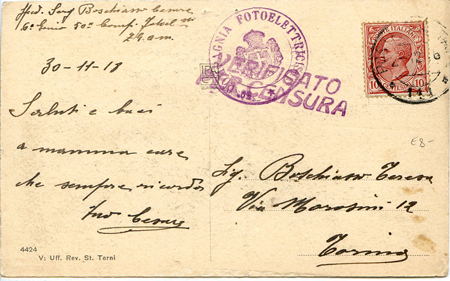 Serg Boschiasso Cesare
6° Genio 50ª Comp.
30-11-18
Saluti e baci
a mamma cara
che sempre ricorda
Cesare
COMPAGNIA FOTOELETTRICISTI
VERIFICATO
CENSURA
POSTE ITALIANE
10 10
£8-
Sig. Boschiasso Teresa
Via Morosini 12
Torino
4424
V: Uff. Rev. St. Terni